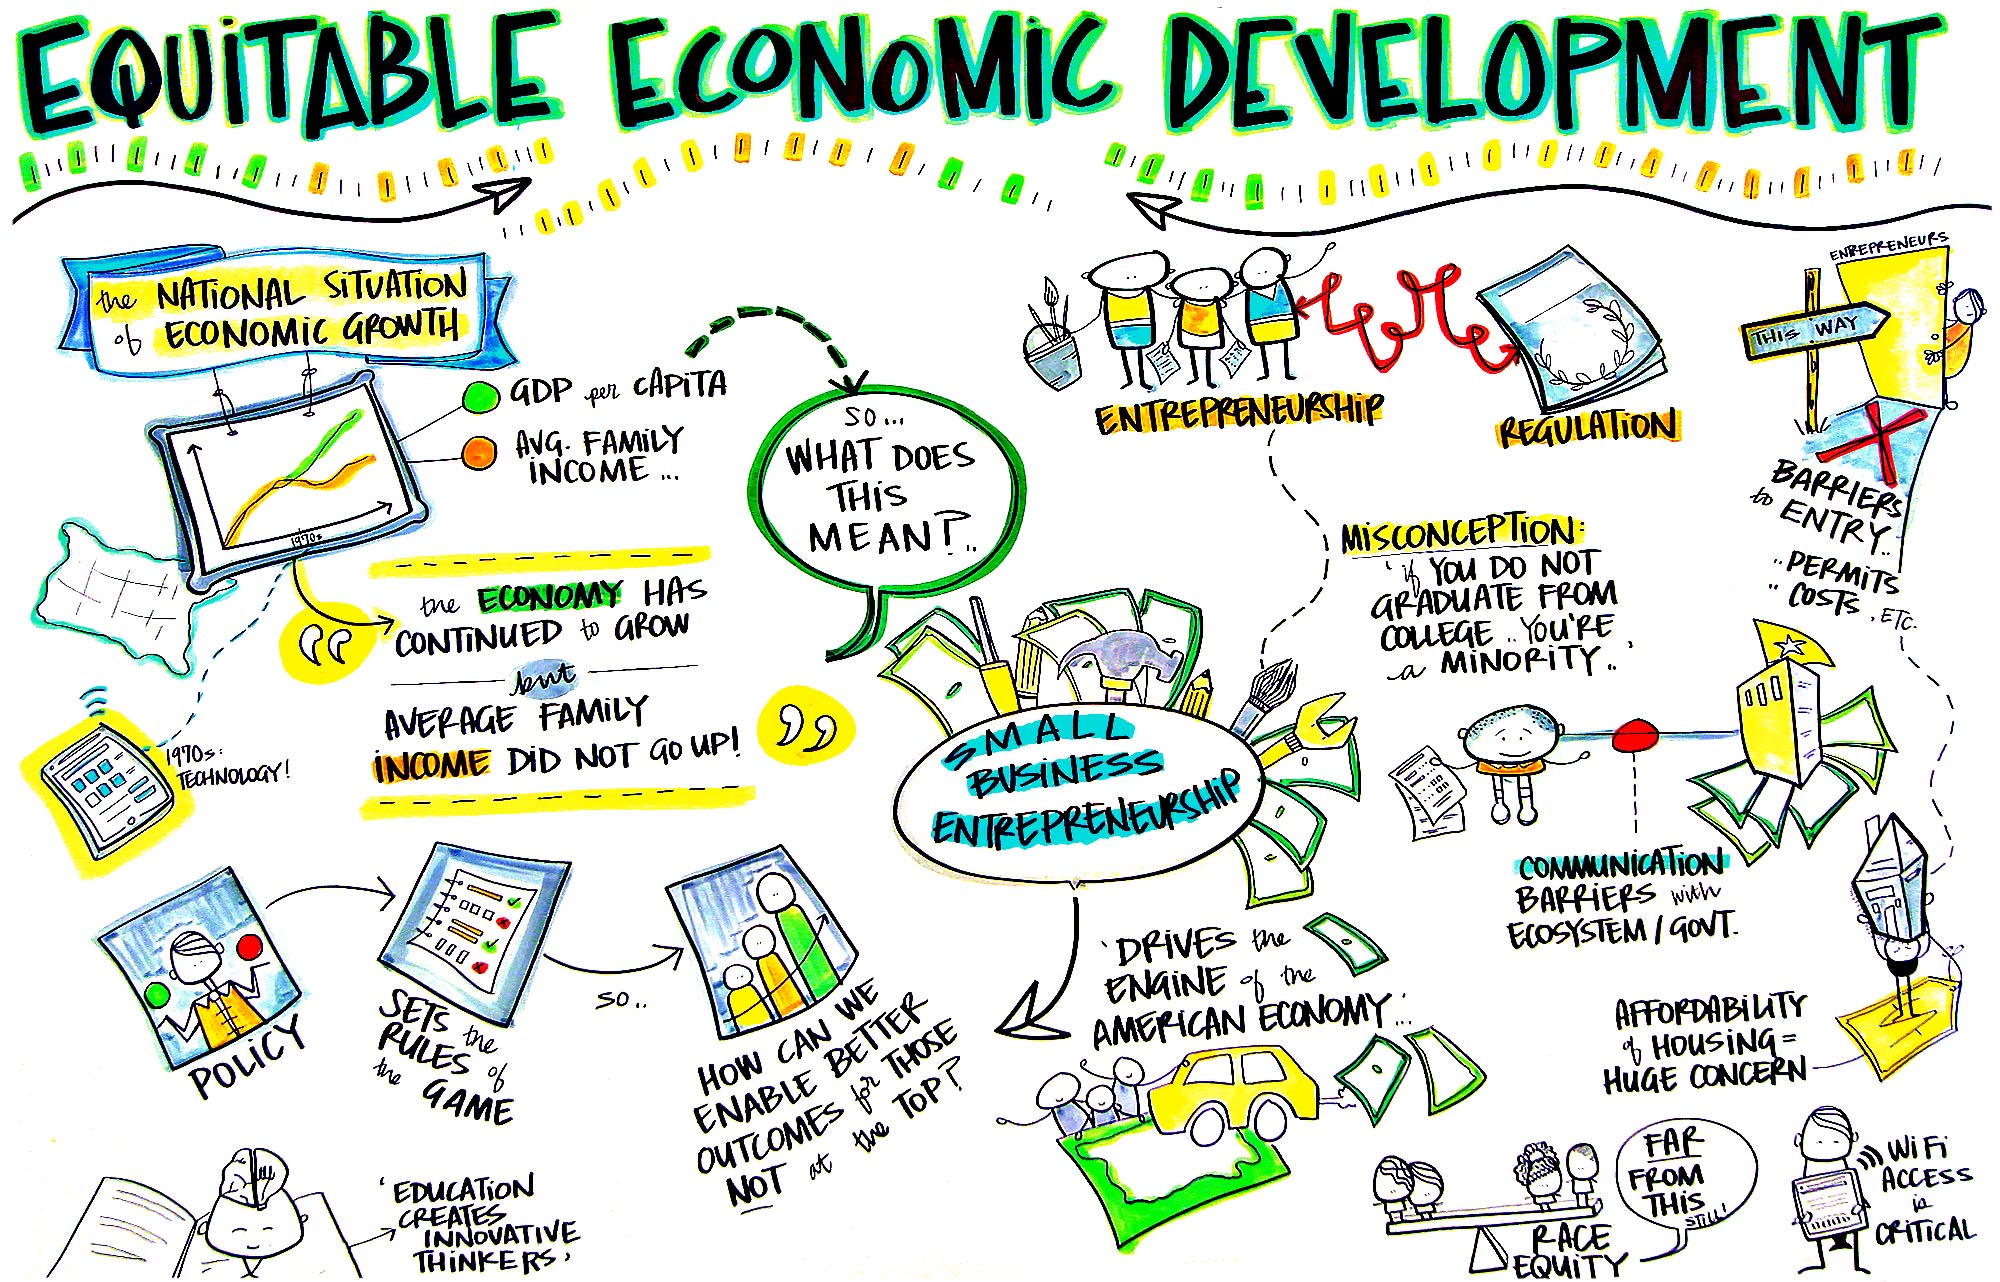 EQUITABLE ECONOMIC DEVELOPMENT
the NATIONAL SITUATION
of ECONOMIC GROWTH
GDP per CAPITA
AVG. FAMILY
INCOME ...
1970s
the ECONOMY HAS
CONTINUED to GROW
but
AVERAGE FAMILY
INCOME DID NOT GO UP!
1970s:
TECHNOLOGY!
SO...
WHAT DOES
THIS
MEAN?..
POLICY
SETS the
RULES of
the GAME
SO..
HOW CAN WE
ENABLE BETTER
OUTCOMES for THOSE
NOT at the TOP?
'EDUCATION
CREATES
INNOVATIVE
THINKERS,
SMALL
BUSINESS
ENTREPRENEURSHIP
'DRIVES the
ENGINE of the
AMERICAN ECONOMY...'
ENTREPRENEURSHIP
REGULATION
ENTREPRENEURS
THIS WAY
BARRIERS
to ENTRY..
..PERMITS
..COSTS, ETC.
MISCONCEPTION:
'if YOU DO NOT
GRADUATE FROM
COLLEGE.. YOU'RE
a MINORITY..'
COMMUNICATION
BARRIERS with
ECOSYSTEM/GOVT.
AFFORDABILITY
of HOUSING =
HUGE CONCERN
RACE
EQUITY
FAR
FROM
THIS
STILL!
WIFI
ACCESS
is
CRITICAL